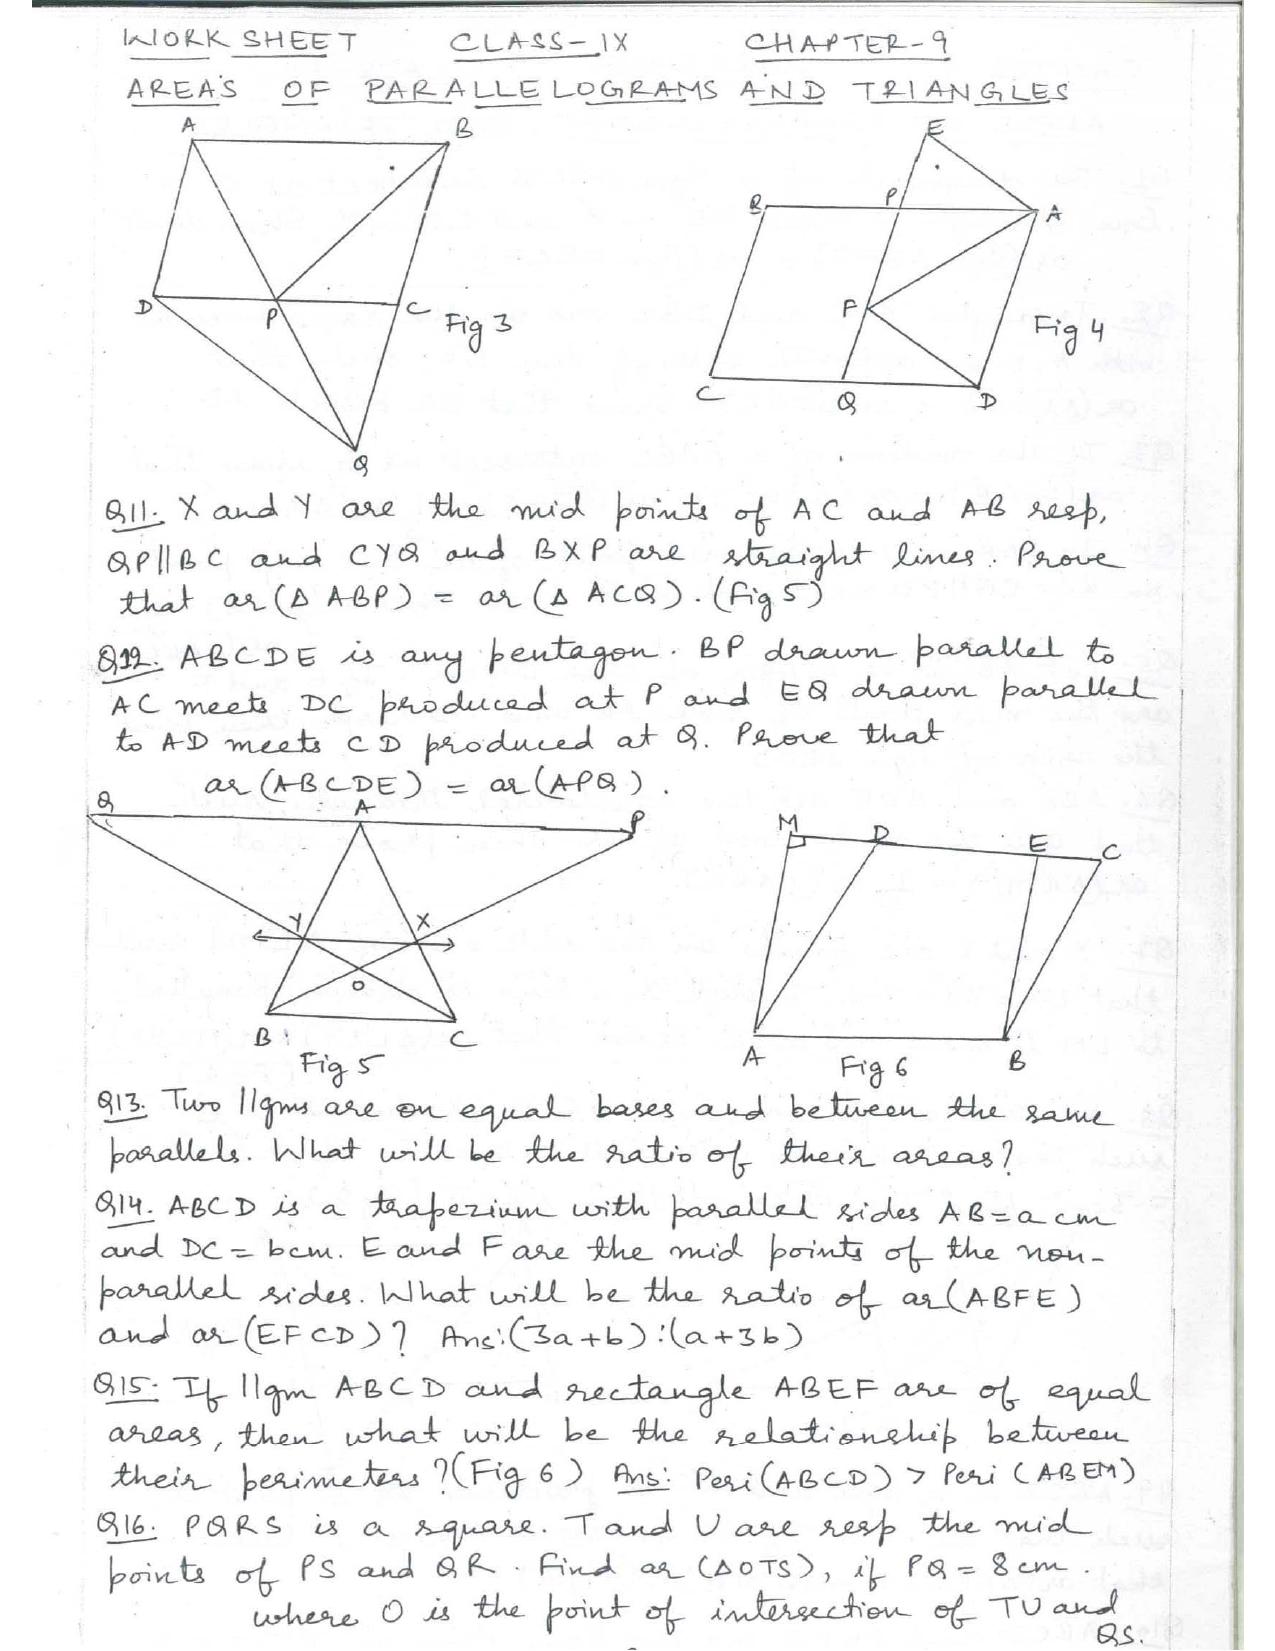 WORK SHEET CLASS-IX CHAPTER-9
AREA'S OF PARALLELOGRAMS AND TRIANGLES
A B E
B P A
D P C Fig 3 F Fig 4
C Q D
Q
Q11. X and Y are the mid points of AC and AB resp,
QP||BC and CYQ and BXP are straight lines. Prove
that ar(Δ ABP) = ar(Δ ACQ). (fig 5)
Q12. ABCDE is any pentagon. BP drawn parallel to
AC meets DC produced at P and EQ drawn parallel
to AD meets CD produced at Q. Prove that
ar(ABCDE) = ar(APQ).
Q A P M D E C
Y X
O
B C A B
Fig 5 Fig 6
Q13. Two ||gms are on equal bases and between the same
parallels. What will be the ratio of their areas?
Q14. ABCD is a trapezium with parallel sides AB=a cm
and DC = bcm. E and F are the mid points of the non-
parallel sides. What will be the ratio of ar(ABFE)
and ar(EFCD)? Ans:(3a+b):(a+3b)
Q15. If ||gm ABCD and rectangle ABEF are of equal
areas, then what will be the relationship between
their perimeters?(Fig 6) Ans: Peri(ABCD) > Peri (ABEM)
Q16. PQRS is a square. T and U are resp the mid
points of PS and QR. Find ar(ΔOTS), if PQ = 8cm.
where O is the point of intersection of TU and
QS.